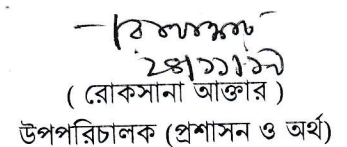 ২৪/১১/১৯
( রোকসানা আক্তার )
উপপরিচালক (প্রশাসন ও অর্থ)